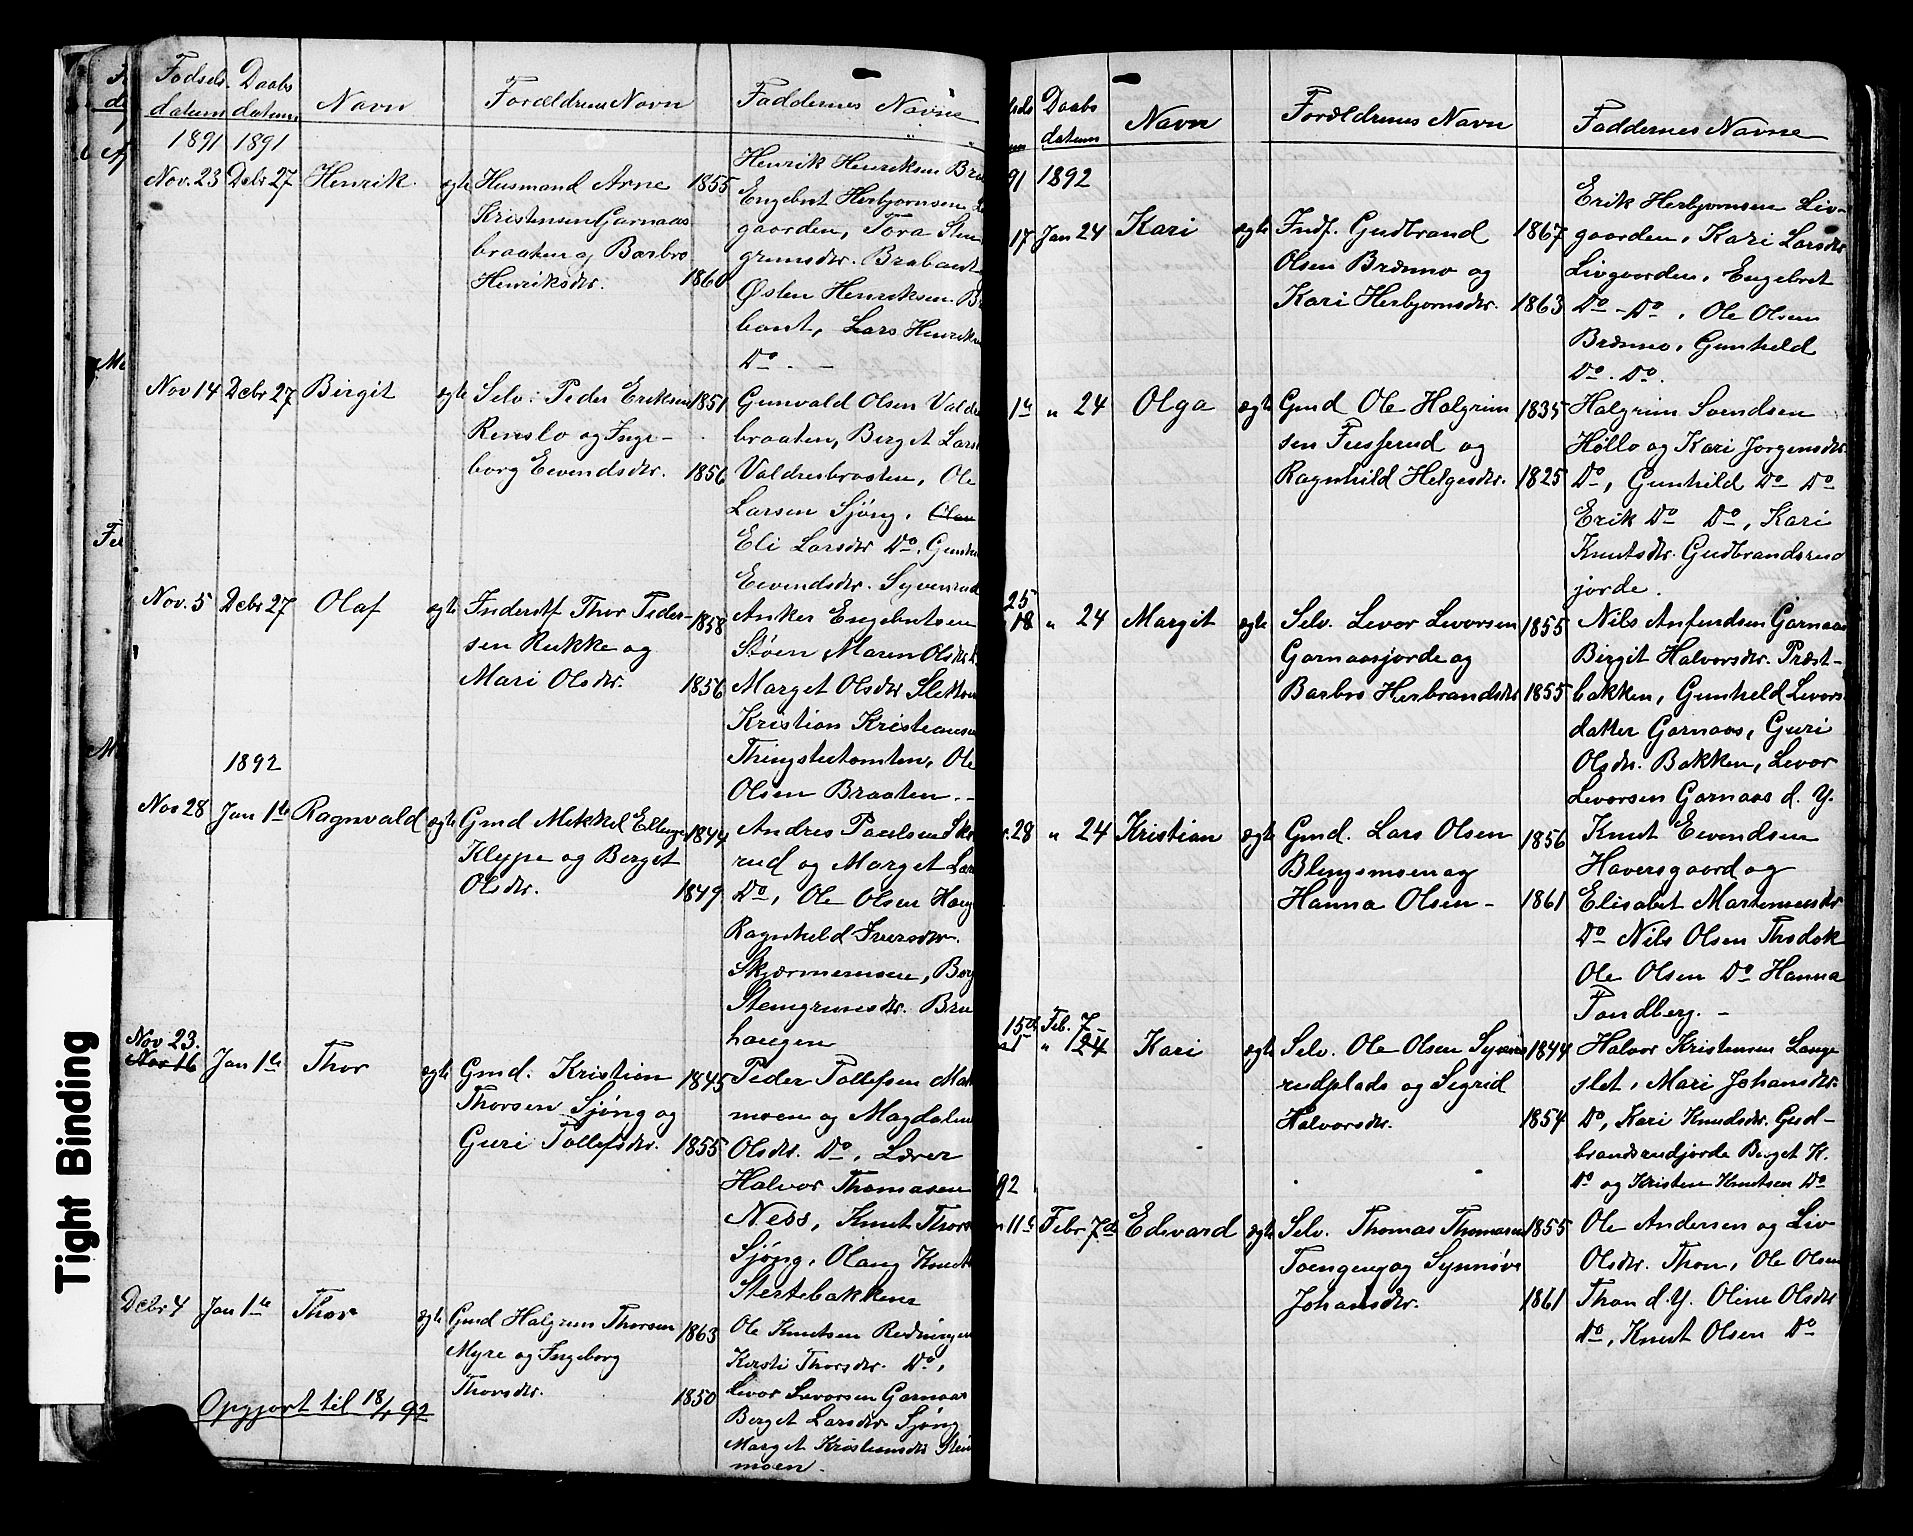 Fødsels Daabs
datum datum Navn Forældrenes Navn Faddernes Navne
1891 1891
Nov. 23 Decbr 27 Henrik ægte Husmand Arne 1855
Kristensen Garnaas
braaten og Barbro
Henriksdtr. 1860
Henrik Henriksen Bra
Engebret Herbjornsen
gaarden, Tora Sten
grimsdtr. Brabant
Østen Henriksen
bant, Lars Henrik
Do. -
Nov 14 Decbr 27 Birgit ægte Selv. Peder Eriksen 1851
Renslo og Inge-
borg Eivendsdtr. 1856
Gunvald Olsen Valdr
braaten, Berget Lars
Valdresbraaten, Ole
Larsen Sjøng,
Eli Larsdtr Do,
Eivendsdtr. Syversrud
Nov. 5 Decbr 27 Olaf ægte Inderstf Thor Peder- 1858
sen Rukke og
Mari Olsdtr. 1856
Anker Engebretsen
Støen Maren Olsdtr
Marget Olsdtr Sletto
Kristian Kristiansen
Thingstutomten, Ole
Olsen Braaten. -
1892
Nov 28 Jan 1te Ragnvald ægte Gmd Mikkel Ellings 1844
Kleppe og Berget
Olsdtr. 1849
Andres Paulsen
rud og Marget Lar
Do, Ole Olsen Haug
Ragnheld Iversdtr.
Skjærmemoen,
Stengrimsdtr. Bra
haugen
Nov 23.
Nov 16 Jan 1te Thor ægte Gmd. Kristian 1845
Thorsen Sjøng og
Guri Tollefsdtr. 1855
Peder Tollefsen
moen og Magdalene
Olsdtr. Do, Lærer
Halvor Thomasen
Ness, Knut Thors
Sjøng, Olaug Knuts
Stertebakken
Decbr 4 Jan 1te Thor ægte Gmd Halgrim Thorsen 1863
Myre og Ingeborg
Thorsdtr. 1850
Ole Knutsen Rodningen
Kersti Thorsdtr. Do,
Levor Levorsen Garnaas
Berget Larsdtr Sjøng
Marget Kristiansdtr Sten
moen.
Opgjort til 18/1 92
Daabs
datum Navn Forældrenes Navn Faddernes Navne
91 1892
17 Jan 24 Kari ægte Indf. Gudbrand 1867
Olsen Brænno og
Kari Herbjornsdtr. 1863
Erik Herbjornsen Liv-
gaarden, Kari Larsdtr
Livgaarden, Engebret
Do - Do, Ole Olsen
Brænno, Gunheld
Do. Do.
1te " 24 Olga ægte Gmd Ole Halgrim 1835
sen Fusserud og
Ragnhild Helgesdtr. 1825
Halgrim Svendsen
Høllo og Kari Jorgensdtr.
Do, Gunhild Do Do
Erik Do Do, Kari
Knutsdtr. Gudbrandsrud
jorde.
25
18 " 24 Margit ægte Selv. Levor Levorsen 1855
Garnaasjorde og
Barbro Herbrandsdtr 1855
Nils Anfendsen Garnaas
Birgit Halvorsdtr. Præst-
bakken, Gunheld Levors
datter Garnaas, Guri
Olsdtr. Bakken, Levor
Levorsen Garnaas d. Y.
28 " 24 Kristian ægte Gmd. Lars Olsen 1856
Blengsmoen og
Hanna Olsen - 1861
Knut Eivendsen
Haversgaard og
Elisabet Martensendtr
Do Nils Olsen
Ole Olsen Do Hanna
Tandberg. -
15de Feb. 7-
" 24 Kari ægte Selv. Ole Olsen Syvers 1844
rudplads og Segrid
Halvorsdtr. 1854
Halvor Kristensen Lange
slet, Mari Johansdtr.
Do, Kari Knudsdtr. Gud-
brandsrudjorde Berget K.
Do og Kristen Knutsen Do
92
11te Febr 7de Edevard ægte Selv. Thomas Thomasen 1855
Toengen og Synnøve
Johansdtr. 1861
Ole Andersen og Liv
Olsdtr. Thon, Ole Olsen
Thon d.Y. Oline Olsdtr
Do, Knut Olsen Do
Tight Binding